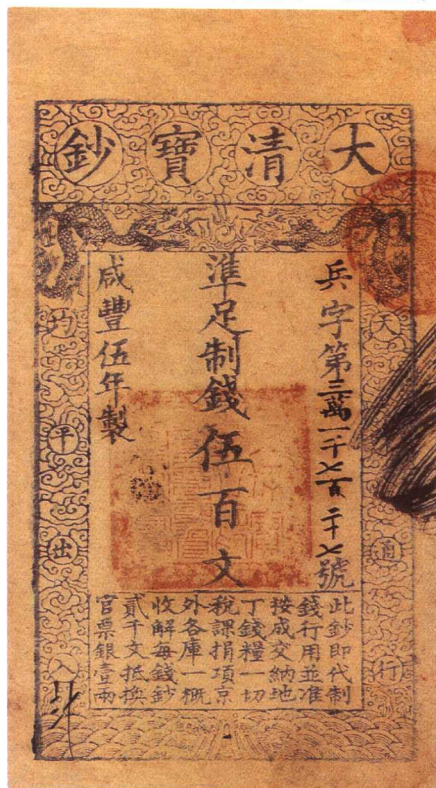 大清寶鈔
天 通行
兵字第三萬一千七百二十七號
準足制錢伍百文
咸豐伍年製
均平出入
此鈔即代制
錢行用並准
按成交納地
丁錢糧一切
稅課捐項京
外各庫一概
收解每錢鈔
貳千文抵換
官票銀壹兩